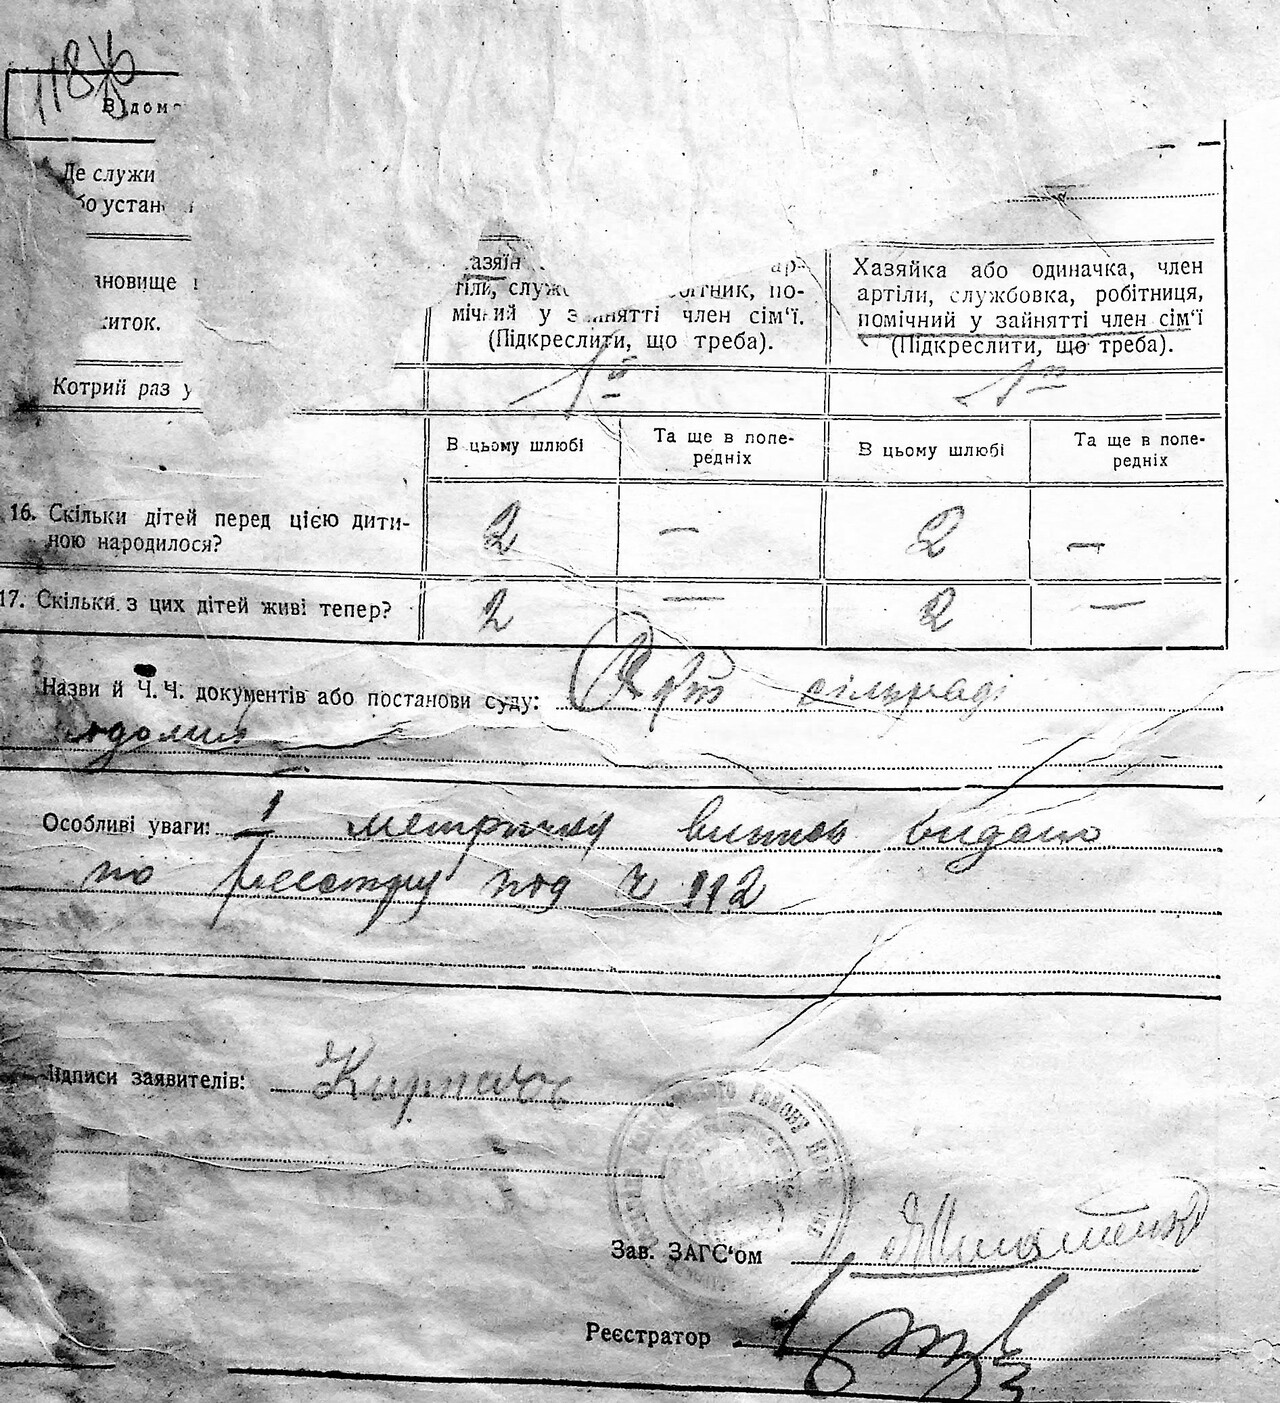 Відом
Де служи
бо устан
ановище
житок.
Хазяїн ар-
тіли, служ робітник, по-
мічний у зайнятті член сім'ї.
(Підкреслити, що треба).
Хазяйка або одиначка, член
артіли, службовка, робітниця,
помічний у зайнятті член сім'ї
(Підкреслити, що треба).
Котрий раз у
В цьому шлюбі
Та ще в попе-
редніх
В цьому шлюбі
Та ще в попе-
редніх
16. Скільки дітей перед цією дити-
ною народилося?
2 — 2 —
17. Скільки з цих дітей живі тепер?
2 — 2 —
Назви й Ч. Ч. документів або постанови суду: сільраді
Особливі уваги: І метричну витяг видано
по реєстру под ч 112
Підписи заявителів:
Зав. ЗАГС'ом
Реєстратор